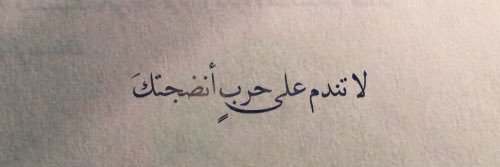 لا تندم على حربٍ أنضجتكَ